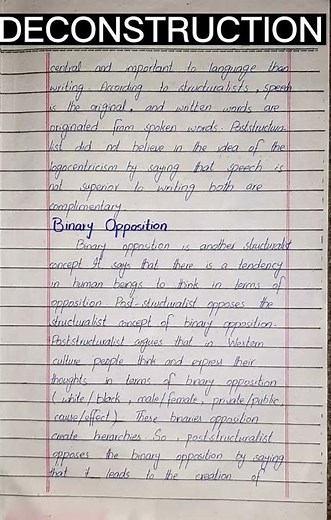 DECONSTRUCTION
central and important to language than
writing. According to structuralists, speech
is the original, and written words are
originated from spoken words. Poststructura-
list did not believe in the idea of the
logocentricism by saying that speech is
not superior to writing both are
complimentary
Binary Opposition
Binary opposition is another structuralist
concept. It says that there is a tendency
in human beings to think in terms of
opposition. Post-structuralist opposes the
structuralist concept of binary opposition.
Poststructuralist argues that in Western
culture people think and express their
thoughts in terms of binary opposition
(white/black, male/female, private/public,
cause/effect). These binaries opposition
create hierarchies. So, poststructuralist
opposes the binary opposition by saying
that it leads to the creation of